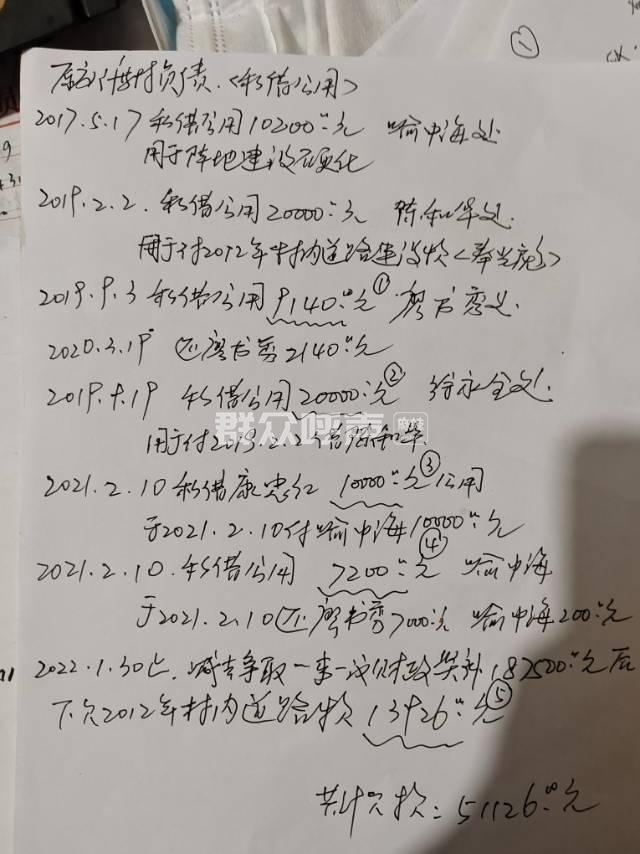 村负债.<私借公用>
2017.5.17 私借公用10200.00元 喻中海处
用于阵地建设硬化
2019.2.2. 私借公用20000.00元 陈和华处.
用于付2012年村内道路建设款
2019.9.3 私借公用9140.00元① 廖书处
2020.3.19 还廖书 2140.00元
2019.9.19 私借公用20000.00元② 徐永全处.
用于付2019.2.2借陈和华
2021.2.10 私借康忠红 10000.00元③公用
于2021.2.10付喻中海10000.00元
2021.2.10.私借公用 7200.00元④ 喻中海
于2021.2.10还廖书 7000.00元 喻中海200.00元
2022.1.30止.减去争取一事一议财政奖补182500.00元后
下欠2012年村内道路款13926.00元⑤
共计欠款:51126.00元
群众呼声